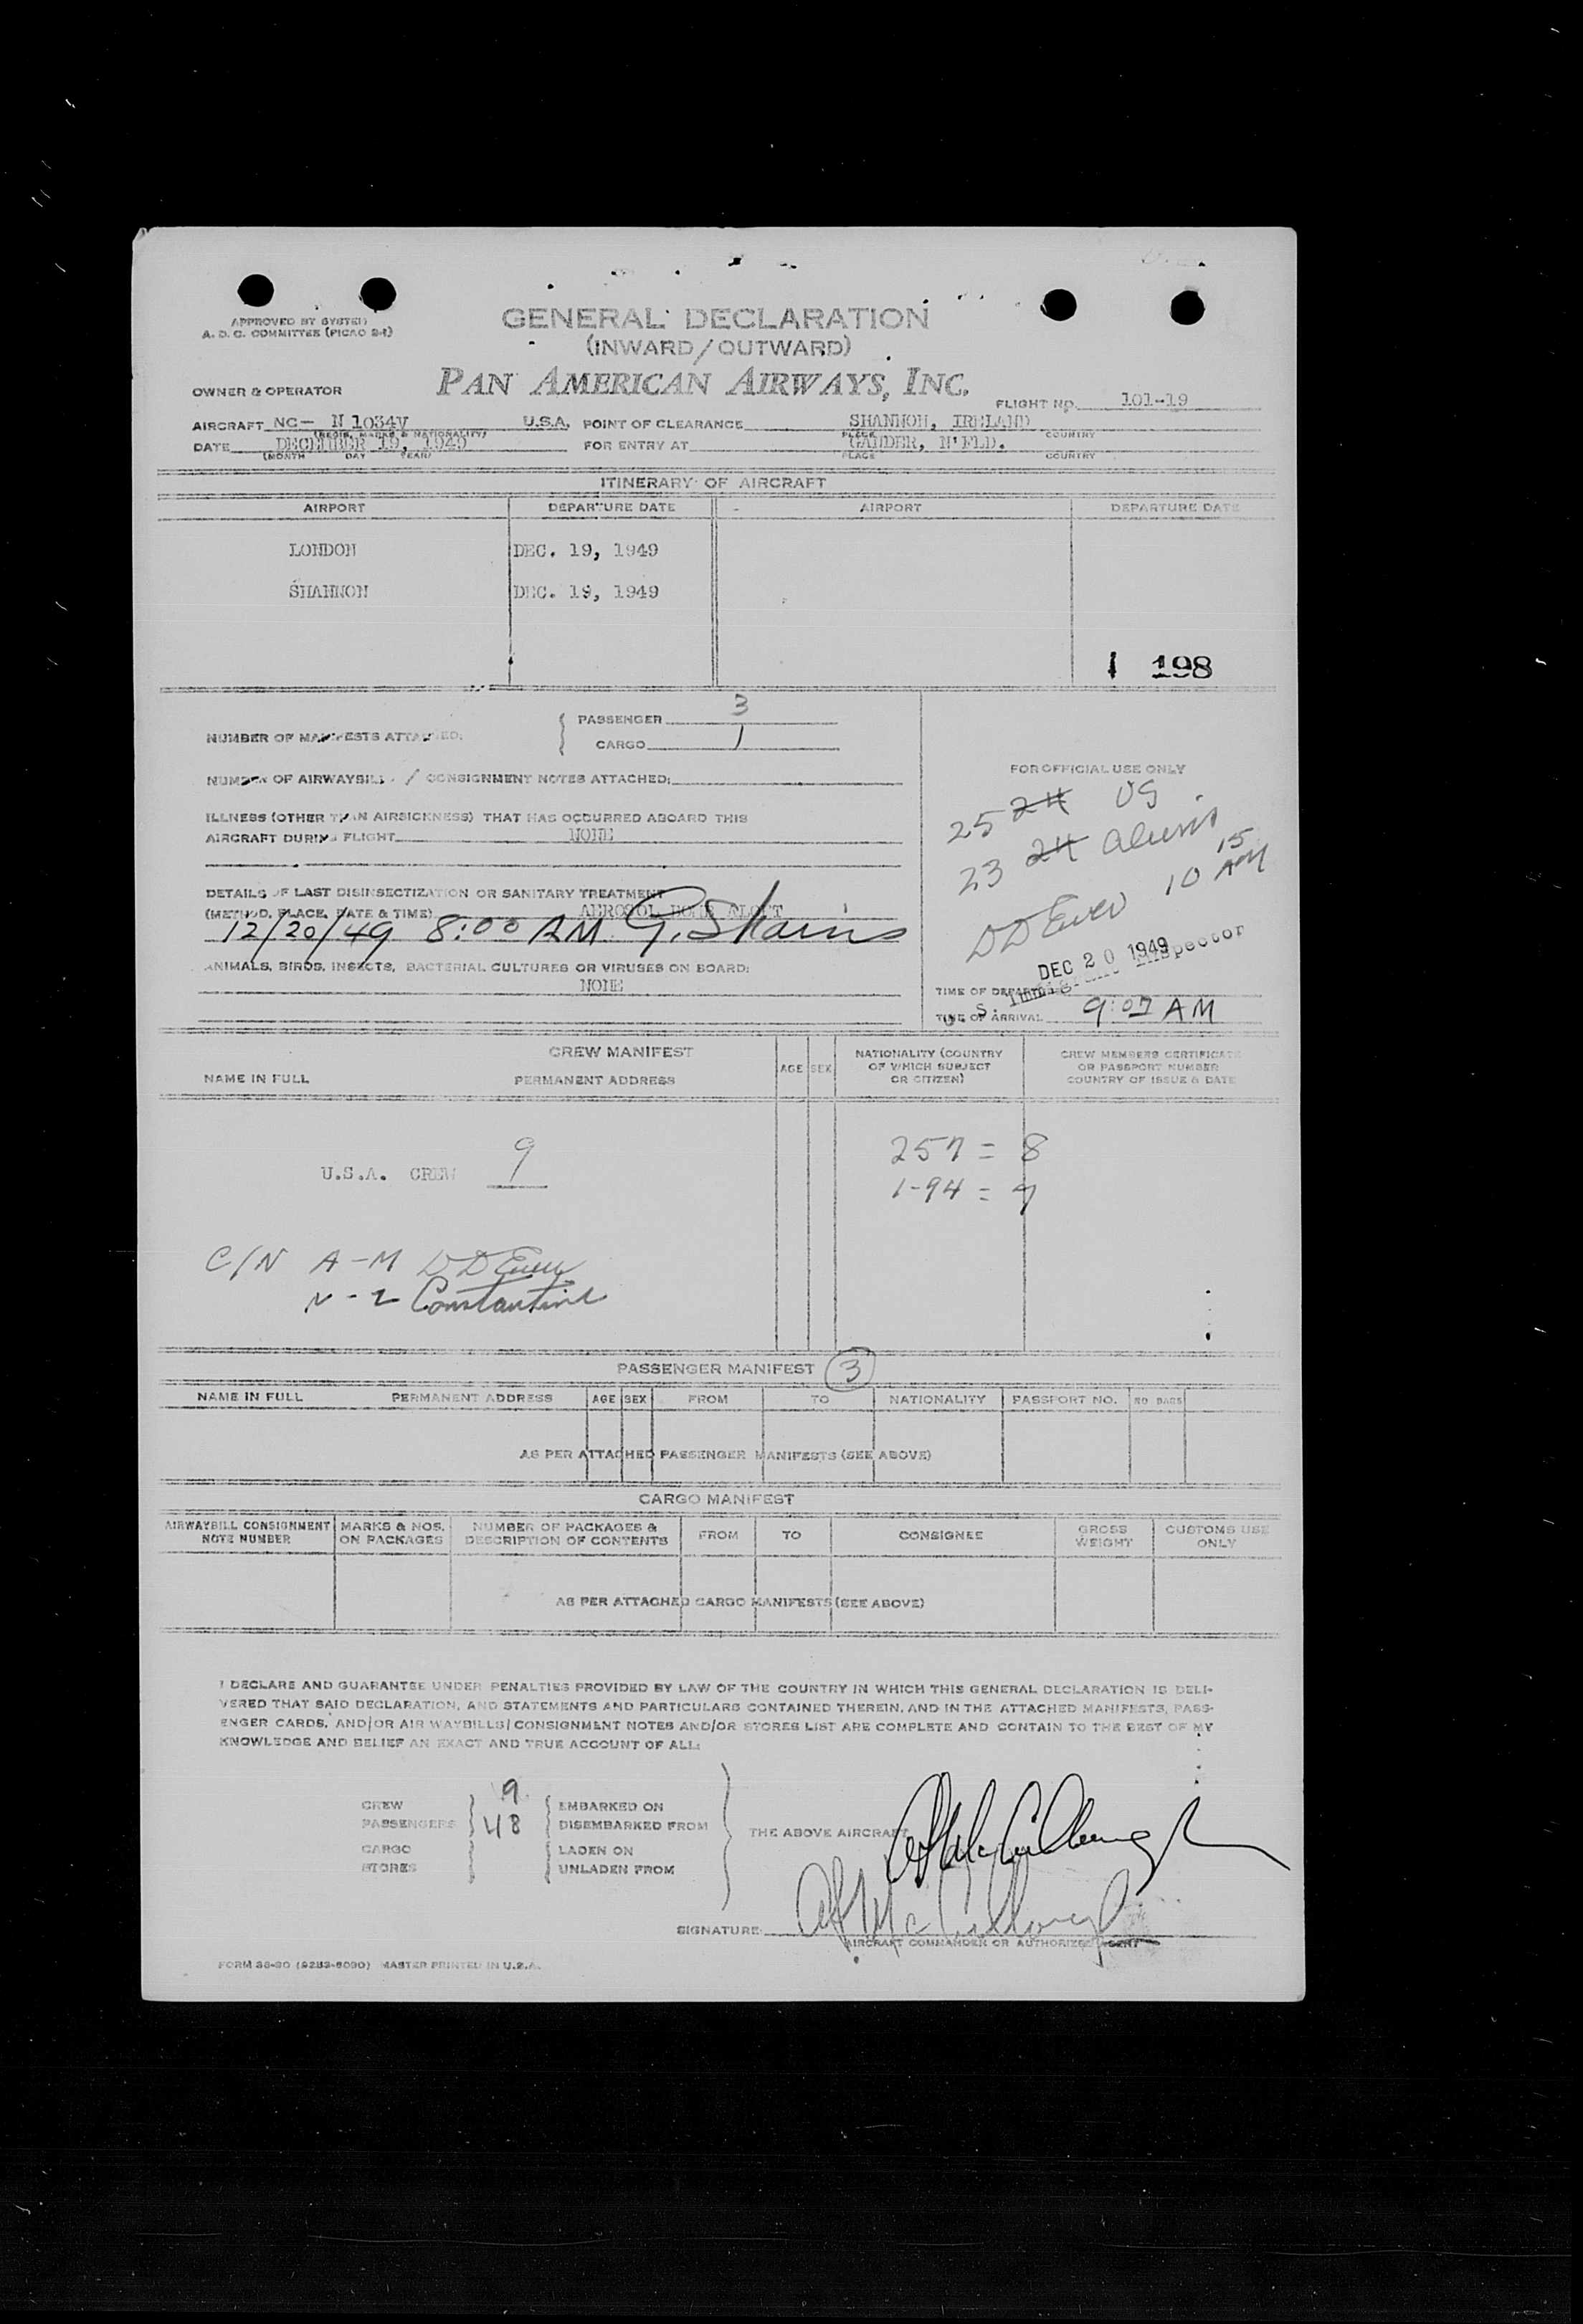 APPROVED BY SYSTEM
A. D. C. COMMITTEE (PICAO 2-1)
GENERAL DECLARATION
(INWARD/OUTWARD)
OWNER & OPERATOR PAN AMERICAN AIRWAYS, INC.
FLIGHT NO. 101-19
AIRCRAFT NC- N 1034V U.S.A. POINT OF CLEARANCE SHANNON, IRELAND
(REGIS. MARKS & NATIONALITY) PLACE COUNTRY
DATE DECEMBER 19, 1949 FOR ENTRY AT GANDER, N'FLD.
(MONTH DAY YEAR) PLACE COUNTRY
ITINERARY OF AIRCRAFT
AIRPORT DEPARTURE DATE AIRPORT DEPARTURE DATE
LONDON DEC. 19, 1949
SHANNON DEC. 19, 1949
198
NUMBER OF MANIFESTS ATTACHED: PASSENGER 3
CARGO 1
NUMBER OF AIRWAYBILLS / CONSIGNMENT NOTES ATTACHED:
ILLNESS (OTHER THAN AIRSICKNESS) THAT HAS OCCURRED ABOARD THIS
AIRCRAFT DURING FLIGHT NONE
DETAILS OF LAST DISINSECTIZATION OR SANITARY TREATMENT
(METHOD, PLACE, DATE & TIME) AEROSOL BOMB ALOFT
12/20/49 8:00 AM
ANIMALS, BIRDS, INSECTS, BACTERIAL CULTURES OR VIRUSES ON BOARD:
NONE
FOR OFFICIAL USE ONLY
25 24 US
23 24 aliens
10 15 AM
DEC 20 1949
U. S. Immigrant Inspector
TIME OF DEPARTURE
TIME OF ARRIVAL 9:07 AM
CREW MANIFEST
NAME IN FULL PERMANENT ADDRESS AGE SEX NATIONALITY (COUNTRY OF WHICH SUBJECT OR CITIZEN) CREW MEMBERS CERTIFICATE OR PASSPORT NUMBER COUNTRY OF ISSUE & DATE
U.S.A. CREW 9
257 = 8
1-94 = 7
C/N A-M
N-Z Constantine
PASSENGER MANIFEST 3
NAME IN FULL PERMANENT ADDRESS AGE SEX FROM TO NATIONALITY PASSPORT NO. NO BAGS
AS PER ATTACHED PASSENGER MANIFESTS (SEE ABOVE)
CARGO MANIFEST
AIRWAYBILL CONSIGNMENT NOTE NUMBER MARKS & NOS. ON PACKAGES NUMBER OF PACKAGES & DESCRIPTION OF CONTENTS FROM TO CONSIGNEE GROSS WEIGHT CUSTOMS USE ONLY
AS PER ATTACHED CARGO MANIFESTS (SEE ABOVE)
I DECLARE AND GUARANTEE UNDER PENALTIES PROVIDED BY LAW OF THE COUNTRY IN WHICH THIS GENERAL DECLARATION IS DELI-
VERED THAT SAID DECLARATION, AND STATEMENTS AND PARTICULARS CONTAINED THEREIN, AND IN THE ATTACHED MANIFESTS, PASS-
ENGER CARDS, AND/OR AIR WAYBILLS/CONSIGNMENT NOTES AND/OR STORES LIST ARE COMPLETE AND CONTAIN TO THE BEST OF MY
KNOWLEDGE AND BELIEF AN EXACT AND TRUE ACCOUNT OF ALL:
CREW 9 EMBARKED ON
PASSENGERS 48 DISEMBARKED FROM
THE ABOVE AIRCRAFT
CARGO LADEN ON
STORES UNLADEN FROM
SIGNATURE: McCullough
AIRCRAFT COMMANDER OR AUTHORIZED AGENT
MASTER PRINTED IN U.S.A.